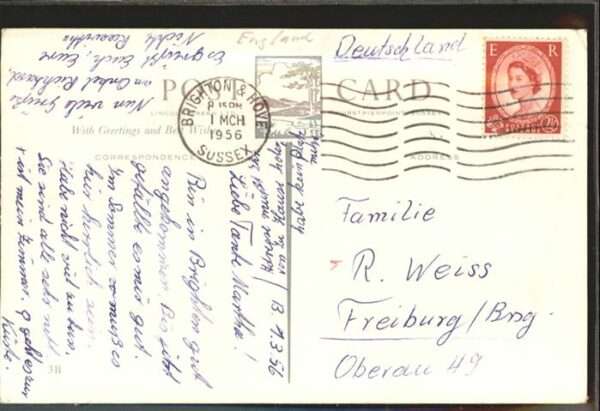 England
Deutschland
POST CARD
With Greetings and Best Wishes
CORRESPONDENCE
ADDRESS
BRIGHTON & HOVE
8 15 PM
1 MCH
1956
SUSSEX
E R
B 1.3.56
Liebe Tante Martha!
Bin in Brighton gut
angekommen. Bis jetzt
gefällt es mir gut.
Im Sommer so muß es
hier herrlich sein.
Habe nicht viel zu tun.
Sie sind alle sehr nett
Nun viele Grüße
an Onkel Richard,
Es grüßt Euch, Eure
Nichte
habe kein Platz
mehr
Familie
R. Weiss
Freiburg/Brsg.
Oberau 49
3B